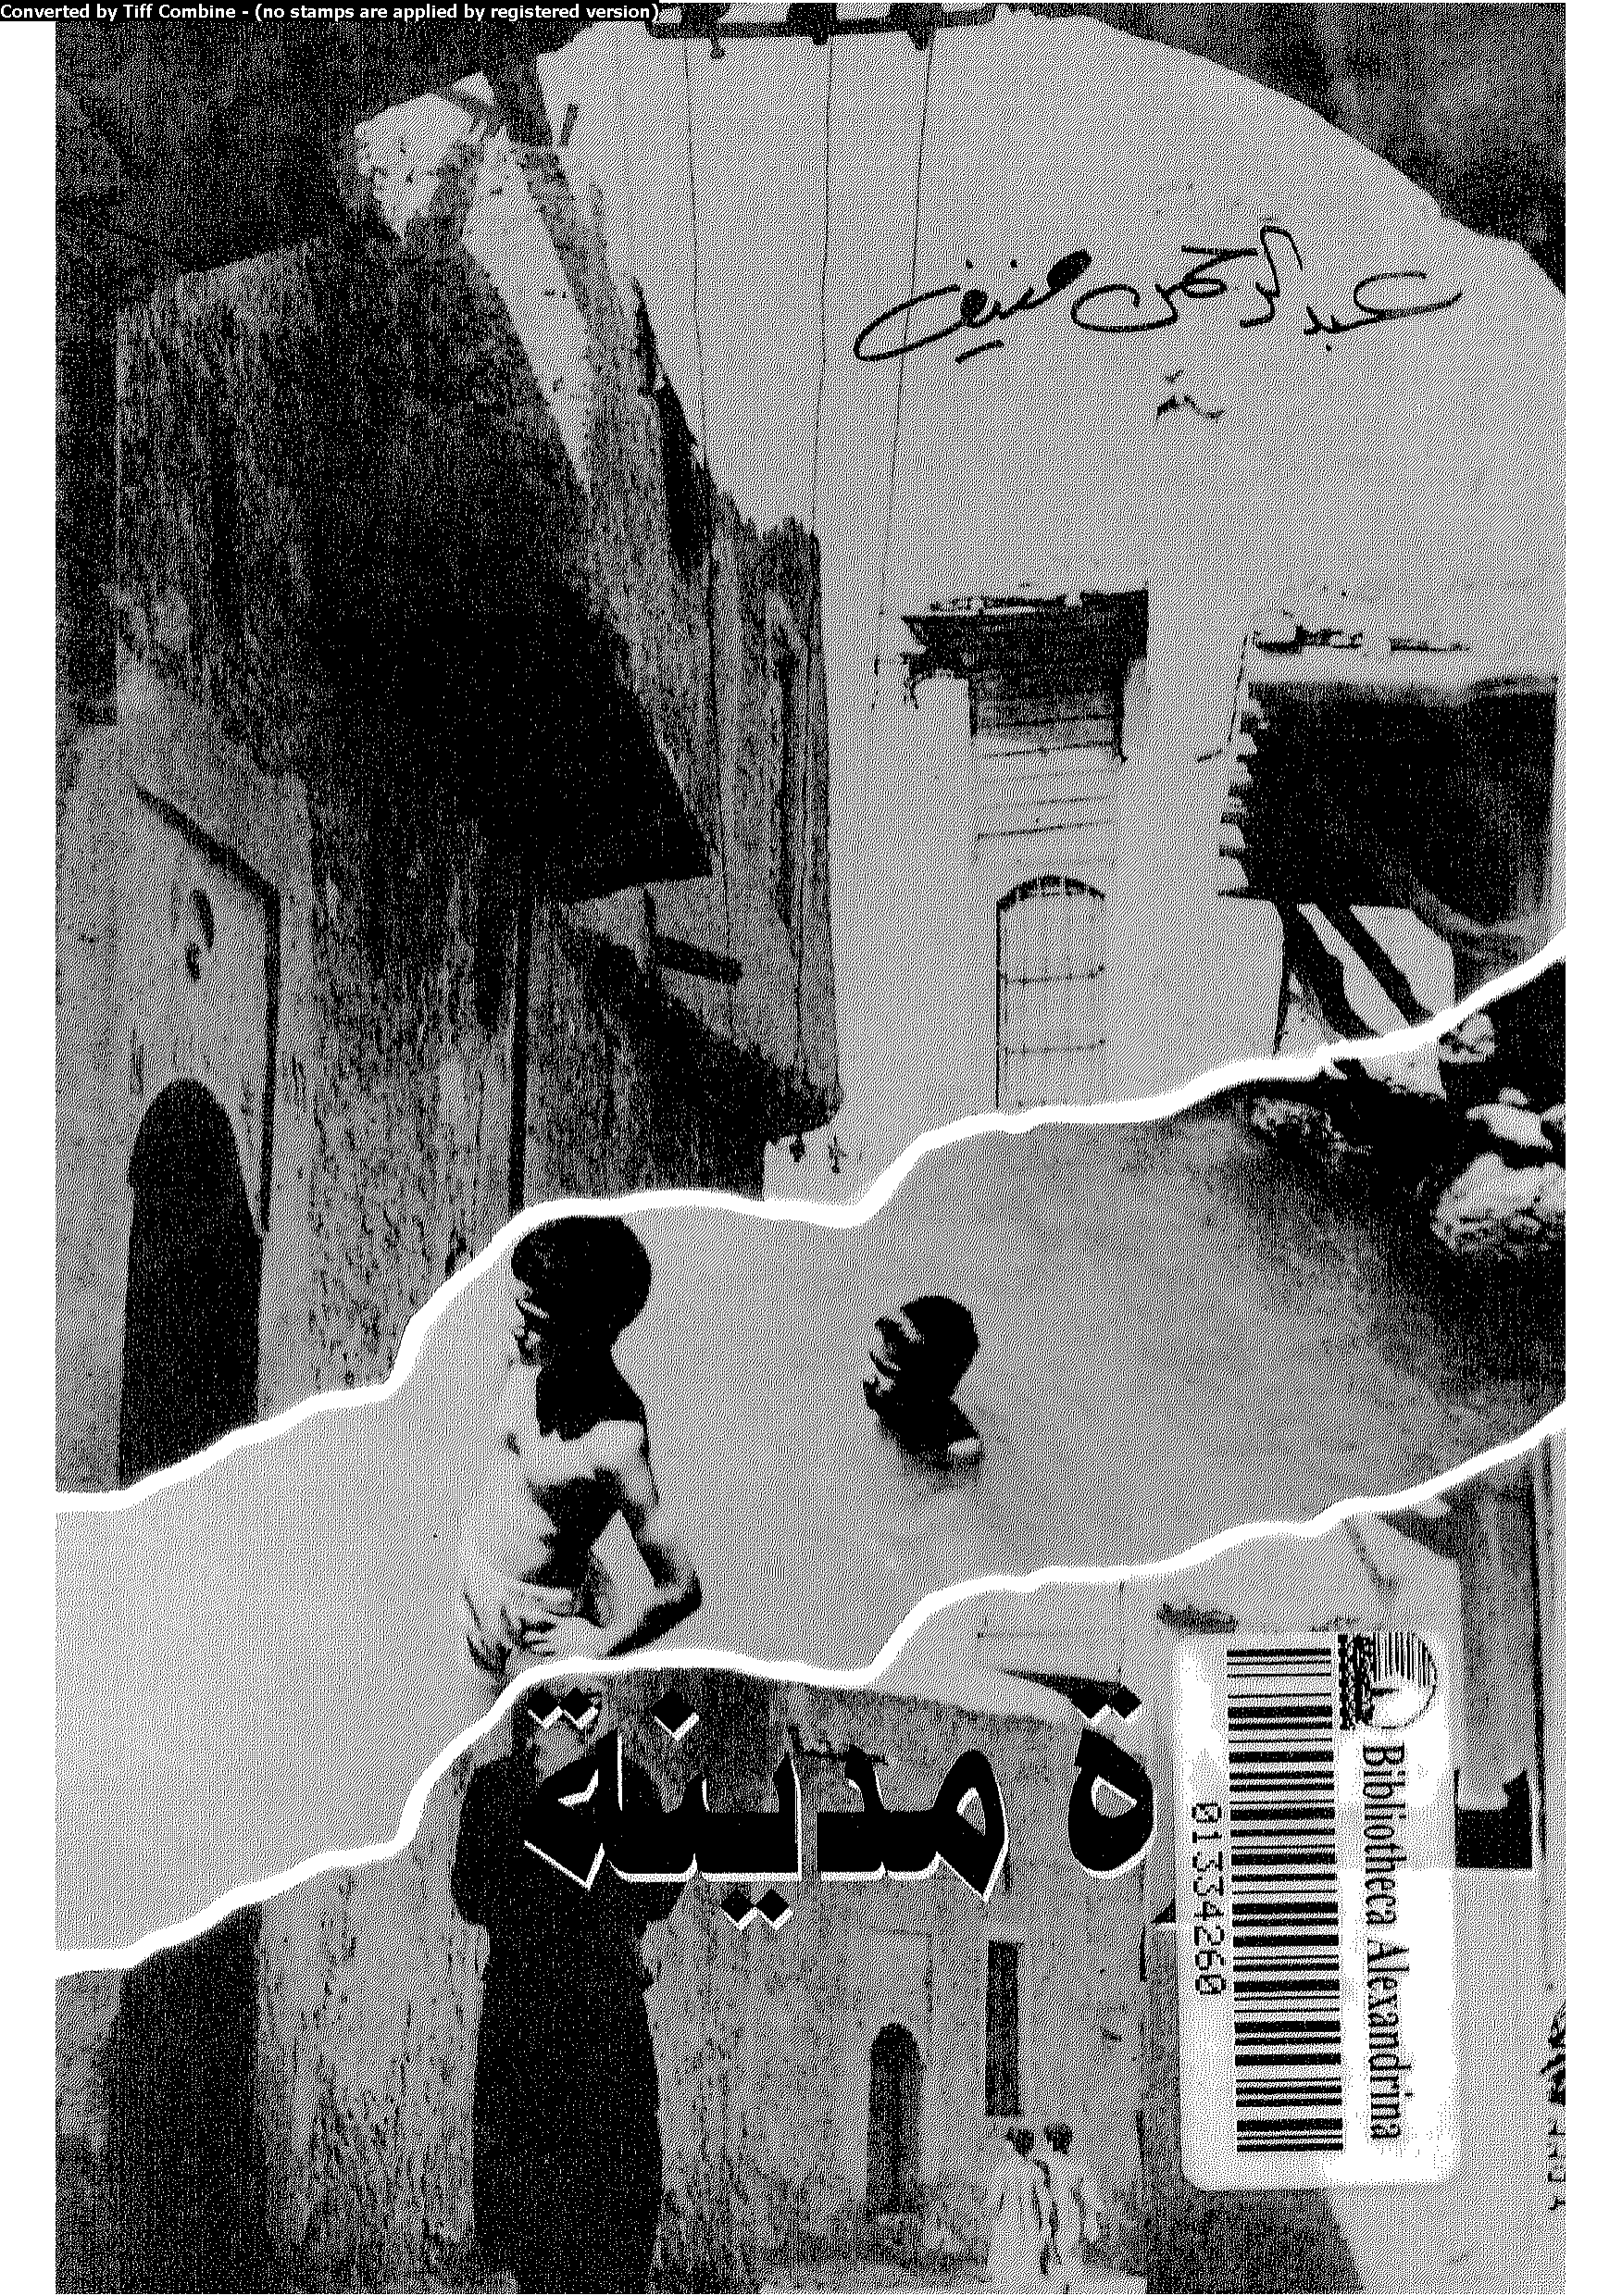 Converted by Tiff Combine - (no stamps are applied by registered version)
عبد الرحمن منيف
ة مدينة
Bibliotheca Alexandrina
01334260